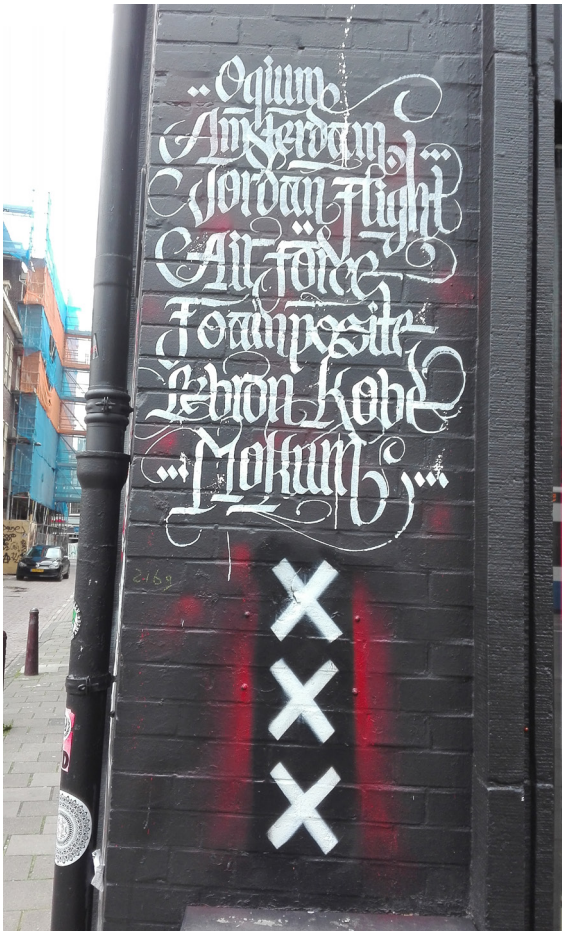 Ogium
Amsterdam
Jordan Flight
Air Force
Foamposite
Lebron Kobe
Mokum
XXX